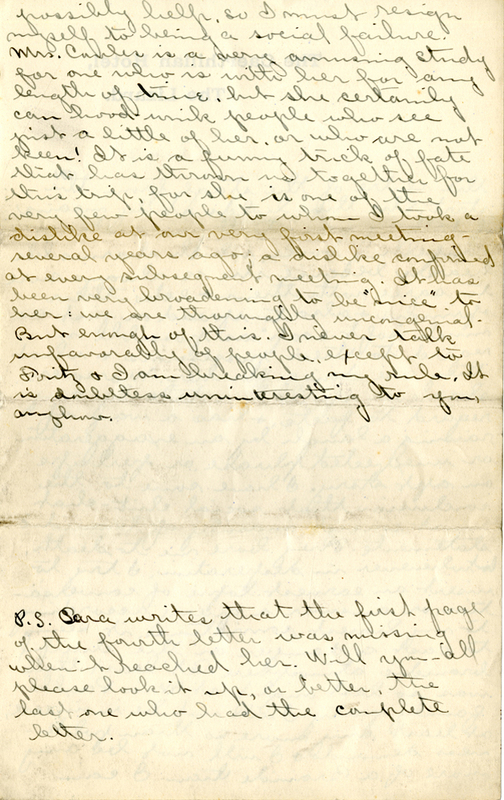 possibly help, so I must resign
myself to being a social failure.
Mrs. is a very amusing study
for one who is with her for any
length of time, but she certainly
can hood wink people who see
just a little of her, or who are not
keen! It is a funny trick of fate
that has thrown us together for
this trip, for she is one of the
very few people to whom I took a
dislike at our very first meeting-
several years ago; a dislike confirmed
at every subsequent meeting. It has
been very broadening to be "nice" to
her: we are thoroughly uncongenial.
But enough of this. I never talk
unfavorably of people, except to
Fritz, & I am breaking my rule. It
is doubtless uninteresting to you,
anyhow.
P.S. Sara writes that the first page
of the fourth letter was missing
when it reached her. Will you-all
please look it up, or better, the
last one who had the complete
letter.